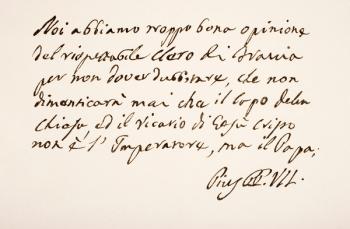 Noi abbiamo troppo bona opinione
del rispettabile Clero di Francia
per non dover dubitare, che non
dimenticarà mai che il Capo della
Chiesa, ed il vicario di Gesù Cristo
non è l'Imperatore, ma il Papa.
Pius PP. VII.